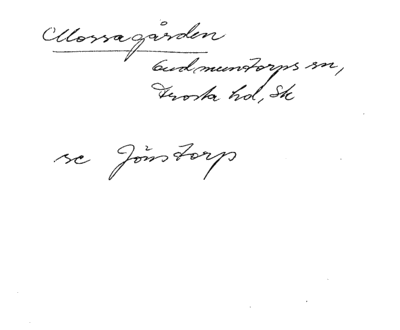 Mossagården
Gudmuntorps sn,
Frosta hd, Sk
se Jönstorp